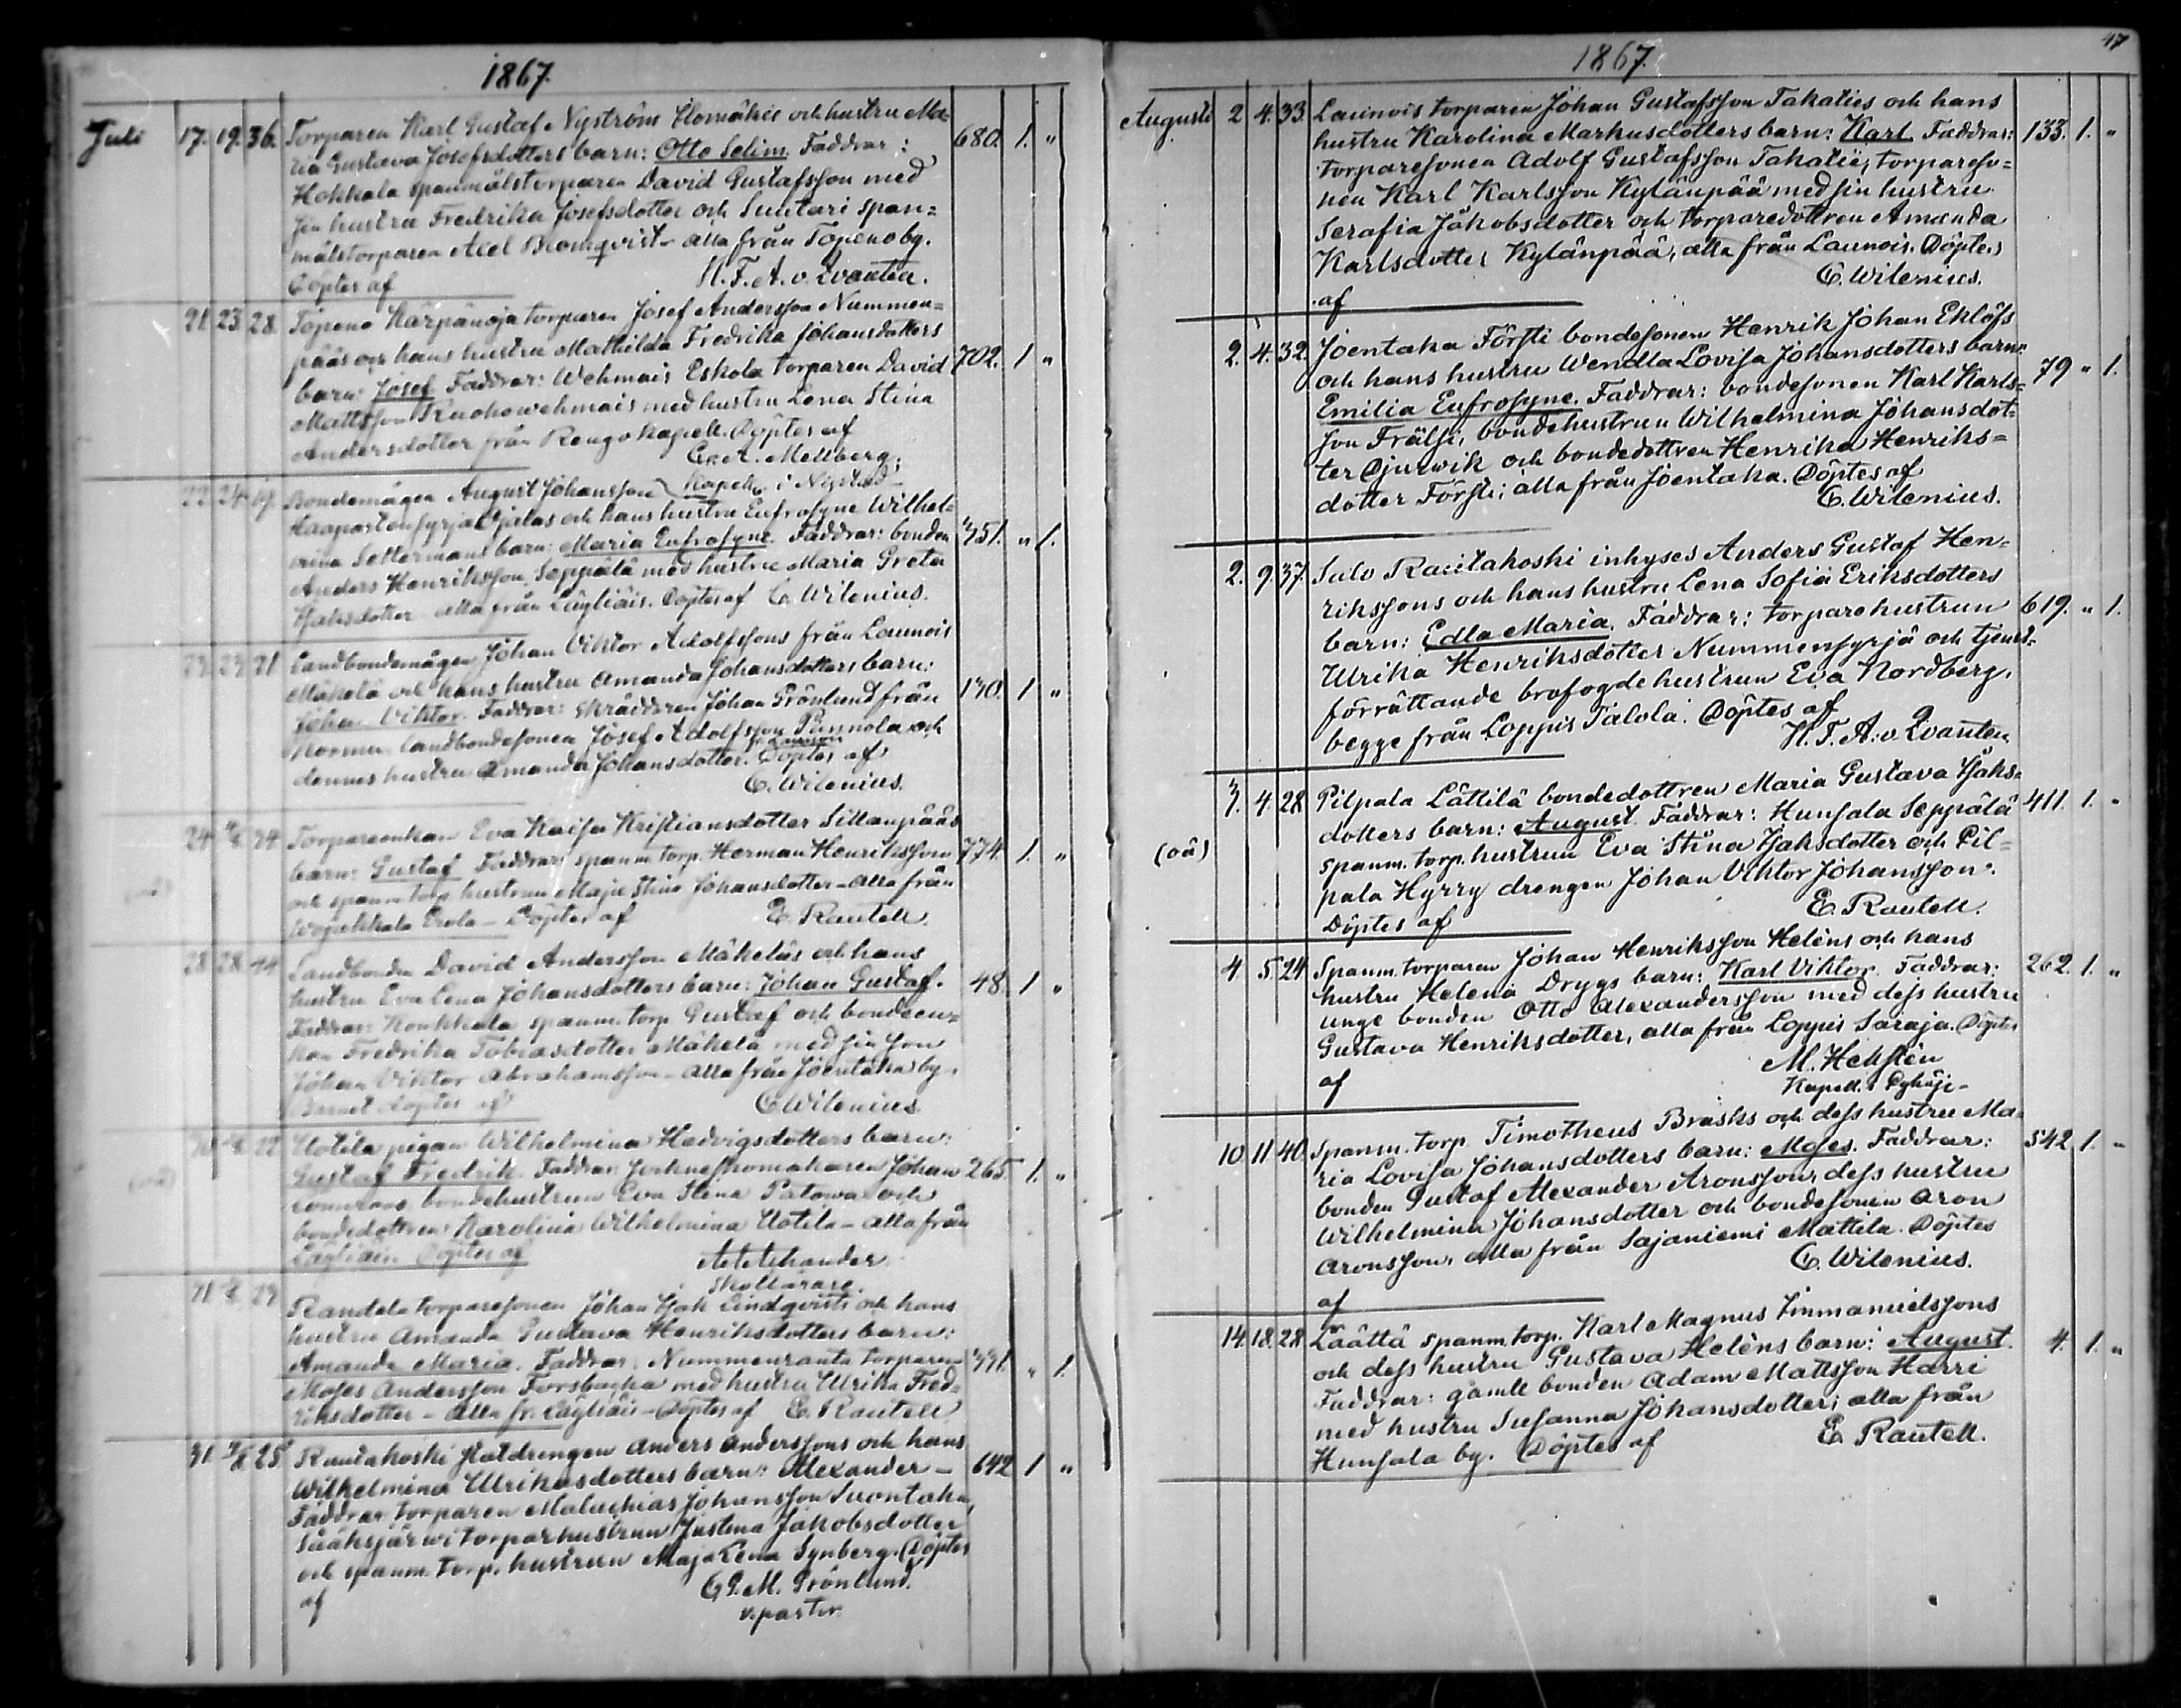 1867.
Juli 17. 19. 36. Torparen Karl Gustaf Nyström och hustru Ma-
ria Gustava Josefsdotters barn: Otto Selim. Faddrar: 680. 1. "
Hokkala spanmålstorparen David Gustafsson med
sin hustru Fredrika Josefsdotter och Suutari span=
målstorparen Axel Blomqvist - alla från Topeno by.
Döptes af H. F. A. v. Qvanten.
21. 23. 28. Topeno Kärpänoja torparen Josef Andersson Nummen=
pääs och hans hustru Mathilda Fredrika Johansdotters
barn: Josef. Faddrar: Wehmais Eskola torparen David 702. 1 "
Mattsson med hustru Lena Stina
Andersdotter från Rengo Kapell. Döptes af
Mellberg,
Kapell. i Nystad
22. 24. Bondemågen August Johansson
och hans hustru Eufrosyne Wilhel=
mina Settermans barn: Maria Eufrosyne. Faddrar: bonden 351. " 1.
Anders Henriksson Seppälä med hustru Maria Greta
Isaksdotter alla från Läyliäis. Döptes af C. Wilenius.
23. 21 Landbondemågen Johan Viktor Adolfssons från Launois
Mäkelä och hans hustru Amanda Johansdotters barn:
Johan Viktor. Faddrar: skräddaren Johan Grönlund från 130. 1 "
Landbondesonen Josef Adolfsson Punnola och
dennes hustru Amanda Johansdotter. Döptes af
C. Wilenius.
24 24. Torpareenkan Eva Kaisa Kristiansdotter Sillanpääs
barn: Gustaf. Faddrar: spanm. torp. Herman Henriksson 774. 1. "
och spanm. torp. hustrun Maja Stina Johansdotter - alla från
Döptes af E. Rautell.
28 28 44 Landbonden David Andersson Mäkeläs och hans
hustru Eva Lena Johansdotters barn: Johan Gustaf. 48. 1 "
Faddrar: Konkkala spanm. torp. Gustaf och bondeen=
kan Fredrika Tobiasdotter Mäkelä med sin son
Johan Viktor Abrahamsson - alla från Joentaka by.
Barnet döptes af C. Wilenius
22 Uotila pigan Wilhelmina Hedvigsdotters barn:
(oä) Gustaf Fredrik. Faddrar: skomakaren Johan 265. 1. "
bondehustrun Eva Stina och
bondedottren Karolina Wilhelmina Uotila - alla från
Läyliäis. Döptes af
Skollärare.
31 Randela torparesonen Johan Isak Lindqvists och hans
hustru Amanda Gustava Henriksdotters barn:
Amanda Maria. Faddrar: Nummenranta torparen 331. " 1.
Moses Andersson Forsbacka med hustru Ulrika Fred=
riksdotter - alla fr. Läyliäis - Döptes af E. Rautell
31 25 Rautakoski statdrengen Anders Anderssons och hans
Wilhelmina Ulrikasdotters barn: Alexander - 642 1 "
Faddrar torparen Malachias Johansson Suontaka,
Sääksjärwi torparhustrun Justina Jakobsdotter
och spanm. torp. hustrun Maja Lena Synberg. Döptes
af G. M. Grönlund.
v. pastor.
1867. 47
Augusti 2 4. 33. Launois torparen Johan Gustafsson Takalies och hans
hustru Karolina Markusdotters barn: Karl. Faddrar: 133. 1. "
torparesonen Adolf Gustafsson Takalie, torpareso=
nen Karl Karlsson Kylänpää med sin hustru
Serafia Jakobsdotter och torparedottren Amanda
Karlsdotter Kylänpää, alla från Launois. Döptes
af C. Wilenius.
2. 4. 32. Joentaka Försti bondesonen Henrik Johan Eklöfs
och hans hustru Wendla Lovisa Johansdotters barn: 79 " 1.
Emilia Eufrosyne. Faddrar: bondesonen Karl Karls=
son Frälsi, bondehustrun Wilhelmina Johansdot=
ter Djurwik och bondedottren Henrika Henriks=
dotter Försti; alla från Joentaka. Döptes af
C. Wilenius.
2. 9. 37. Salo Rautakoski inhyses Anders Gustaf Hen=
rikssons och hans hustru Lena Sofia Eriksdotters
barn: Edla Maria. Faddrar: torparehustrun 619. " 1.
Ulrika Henriksdotter Nummensyrjä och tjenst=
förrättande brofogdehustrun Eva Nordberg,
begge från Loppis Talola. Döptes af
H. F. A. v. Qvanten.
3. 4. 28. Pilpala Lättilä bondedottren Maria Gustava Isaks=
dotters barn: August. Faddrar: Hunsala Seppälä 411. 1. "
(oä) spanm. torp. hustrun Eva Stina Isaksdotter och Pil=
pala Hyrry drengen Johan Viktor Johansson.
Döptes af E. Rautell.
4 5. 24. Spanm. torparen Johan Henriksson Heléns och hans
hustru Helena Drygs barn: Karl Viktor. Faddrar: 262. 1. "
unge bonden Otto Alexandersson med dess hustru
Gustava Henriksdotter, alla från Loppis Saraja. Döptes
af M. Hellstén
Kapell. i Pyhäj-
10 11 40 Spanm. torp. Timotheus Brasks och dess hustru Ma=
ria Lovisa Johansdotters barn: Moses. Faddrar: 542. 1. "
bonden Gustaf Alexander Aronsson, dess hustru
Wilhelmina Johansdotter och bondesonen Aron
Aronsson, alla från Sajaniemi Mattila. Döptes
af C. Wilenius.
14. 18. 28. Läättä spanm. torp. Karl Magnus Immanuelssons
och dess hustru Gustava Heléns barn: August. 4. 1. "
Faddrar: gamle bonden Adam Mattsson Harri
med hustru Susanna Johansdotter; alla från
Hunsala by. Döptes af E. Rautell.